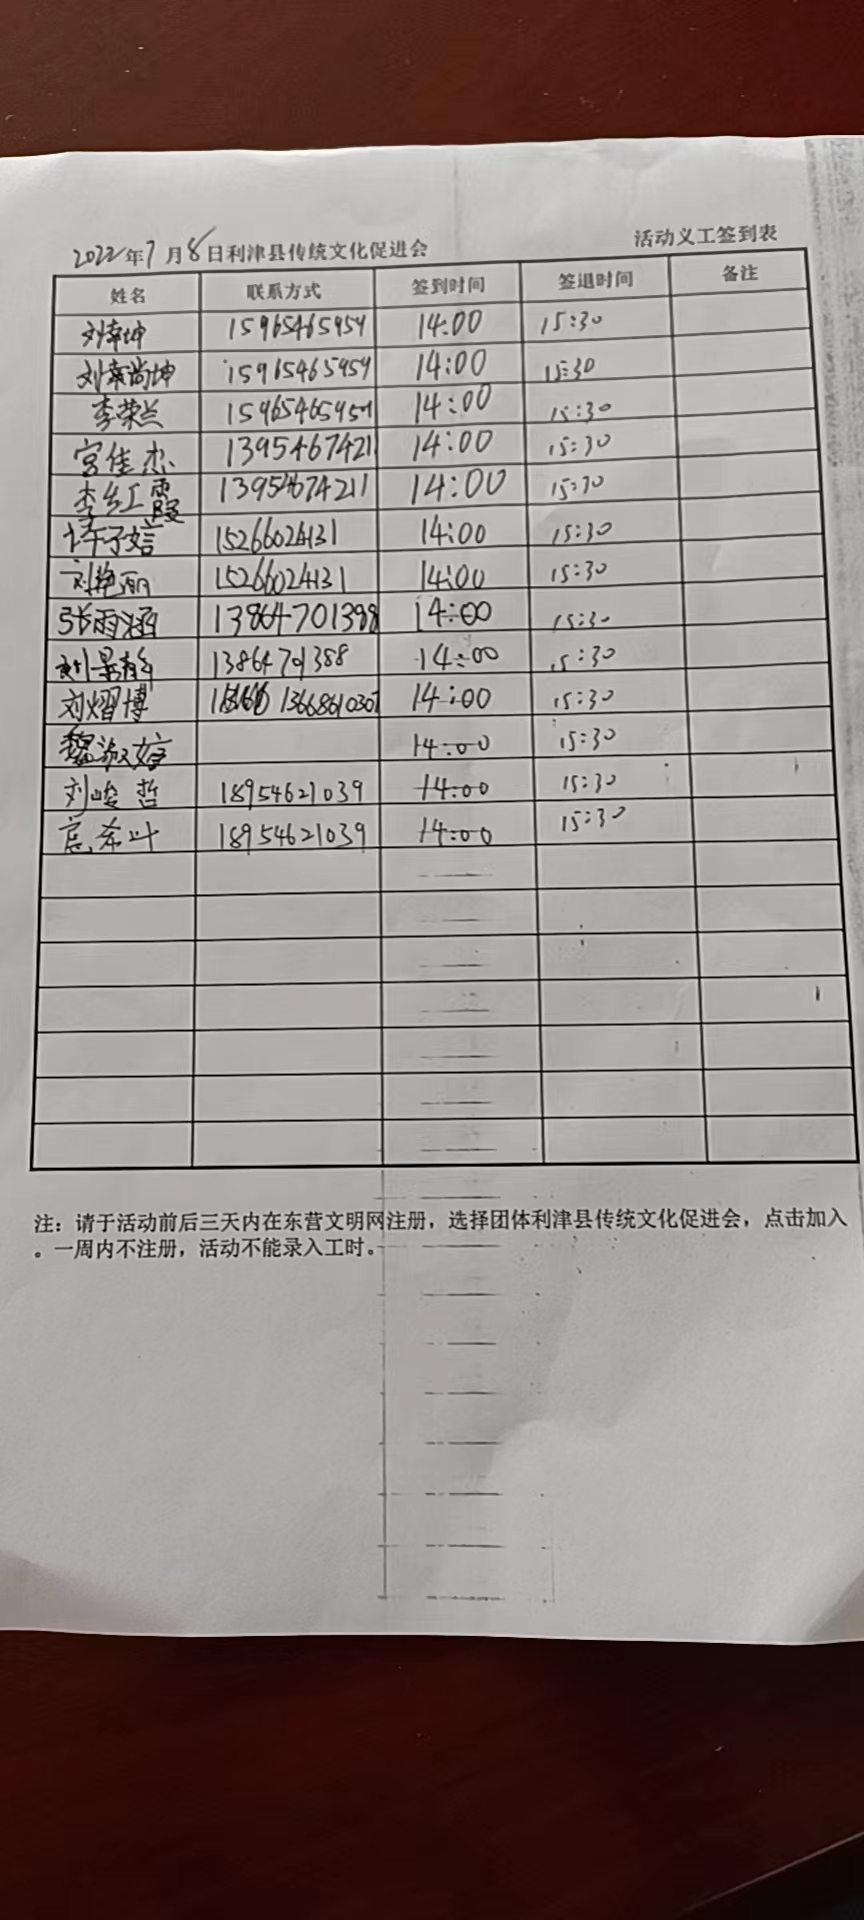 2022年7月8日利津县传统文化促进会 活动义工签到表
姓名 联系方式 签到时间 签退时间 备注
刘幸坤 15965465959 14:00 15:30
刘幸尚坤 15965465959 14:00 15:30
李荣兰 15965465959 14:00 15:30
宫佳杰 13954674211 14:00 15:30
李红霞 13954674211 14:00 15:30
许子言 15266024131 14:00 15:30
刘艳丽 15266024131 14:00 15:30
张雨涵 13864701388 14:00 15:30
13864701388 14:00 15:30
刘熠博 13668610307 14:00 15:30
魏淑婷 14:00 15:30
刘峻哲 18954621039 14:00 15:30
扈希叶 18954621039 14:00 15:30
注：请于活动前后三天内在东营文明网注册，选择团体利津县传统文化促进会，点击加入
。一周内不注册，活动不能录入工时。